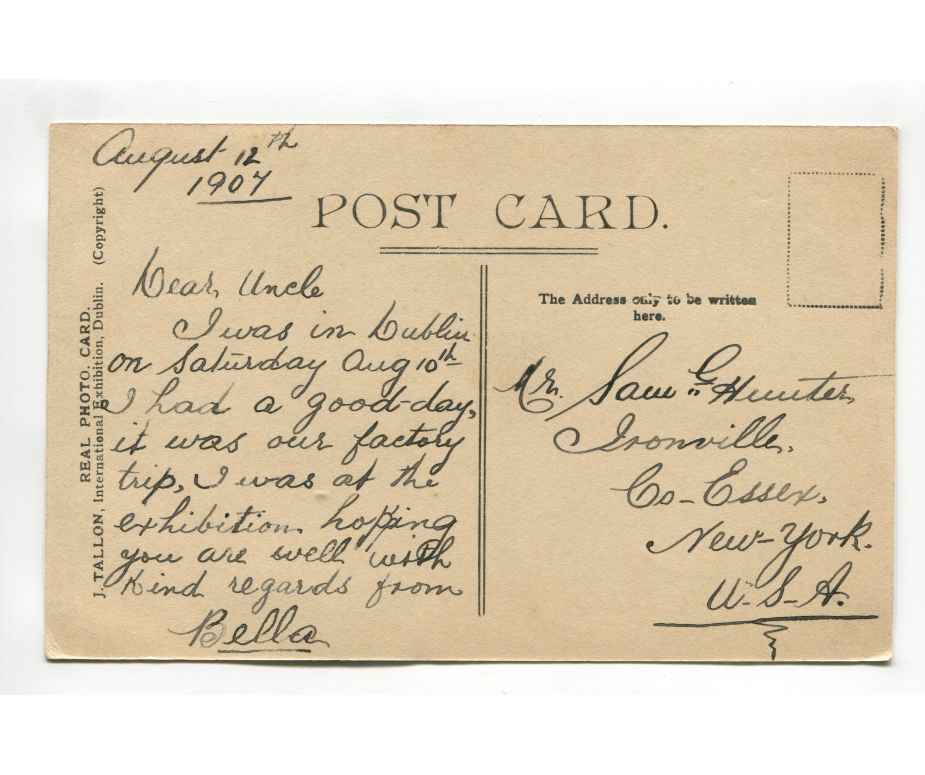 August 12th
1907
POST CARD.
REAL PHOTO. CARD.
J. TALLON, International Exhibition, Dublin. (Copyright)
Dear Uncle
I was in Dublin
on Saturday Aug 10th
I had a good day,
it was our factory
trip, I was at the
exhibition hopping
you are well with
Kind regards from
Bella
The Address only to be written
here.
Mr. Sam G Hunter,
Ironville,
Co-Essex,
New-York.
U-S-A.